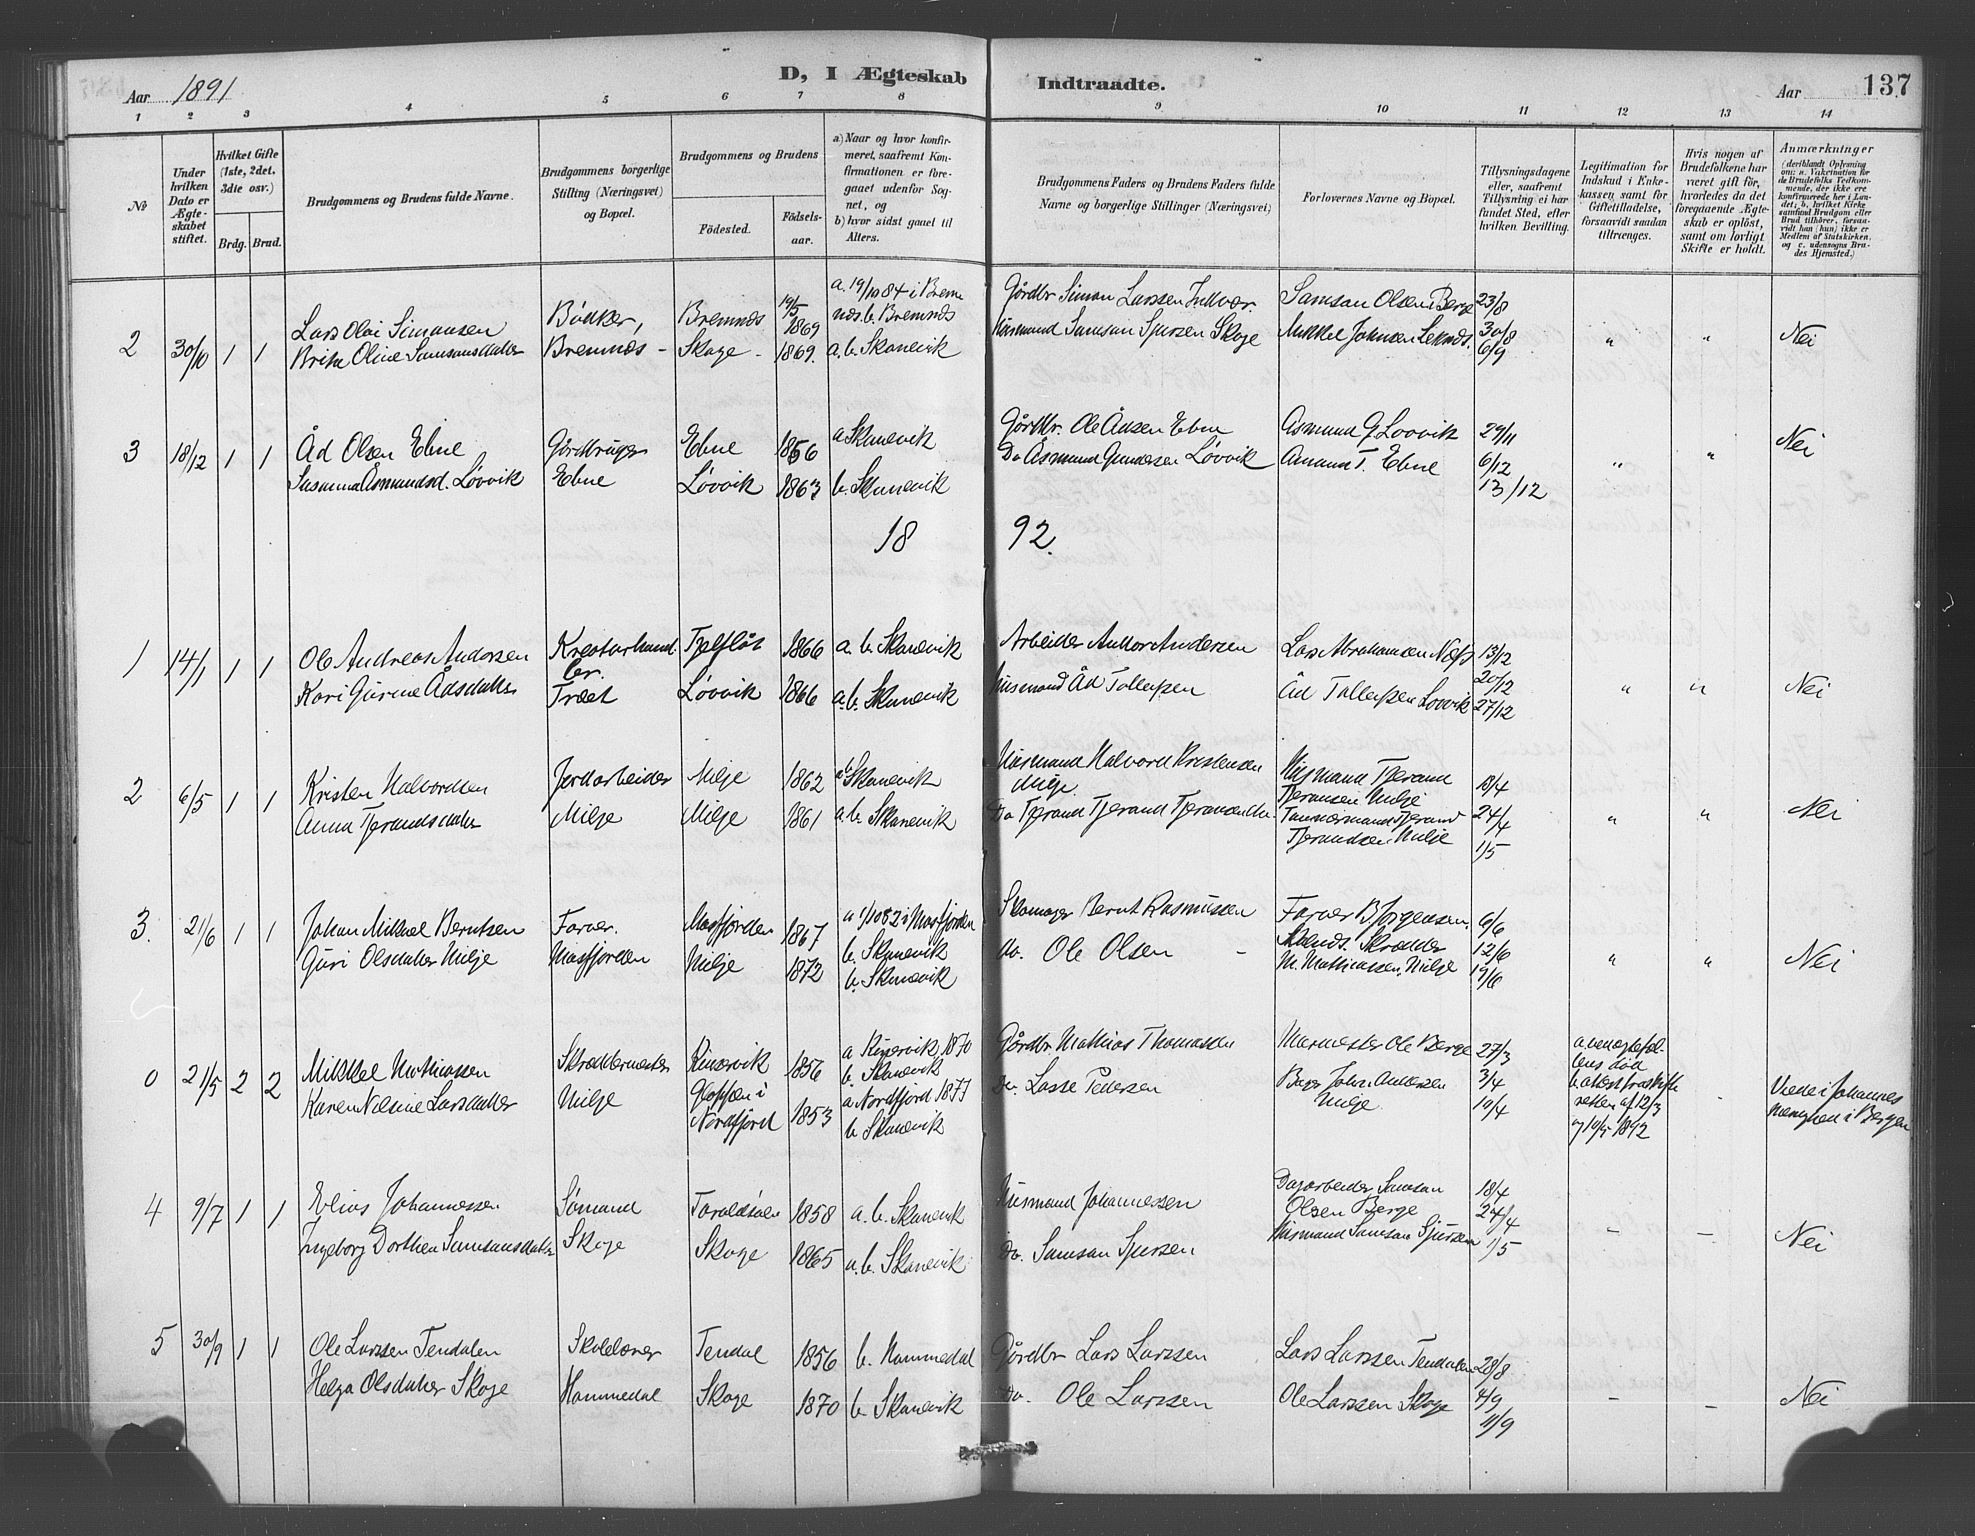 Aar 1891
D, I Ægteskab Indtraadte.
Aar
137
1 2 3 4 5 6 7 8 9 10 11 12 13 14
№
Under hvilken Dato er Ægteskabet stiftet.
Hvilket Gifte (1ste, 2det, 3die osv.)
Brdg. Brud.
Brudgommens og Brudens fulde Navne.
Brudgommens borgerlige Stilling (Næringsvei) og Bopæl.
Brudgommens og Brudens
Fødested. Fødselsaar.
a) Naar og hvor konfirmeret, saafremt Konfirmationen er foregaaet udenfor Sognet, og
b) hvor sidst gaaet til Alters.
Brudgommens Faders og Brudens Faders fulde Navne og borgerlige Stillinger (Næringsvei)
Forlovernes Navne og Bopæl.
Tillysningsdagene eller, saafremt Tillysning ei har fundet Sted, efter hvilken Bevilling.
Legitimation for Indskud i Enkekassen samt for Giftetilladelse, forsaavidt saadan tiltrænges.
Hvis nogen af Brudefolkene har været gift før, hvorledes da det foregaaende Ægteskab er opløst, samt om lovligt Skifte er holdt.
Anmærkninger (deriblandt Oplysning om: a. Vakcination for de Brudefolks Vedkommende, der ikke ere konfirmerede her i Landet; b. hvilket Kirkesamfund Brudgom eller Brud tilhører, forsaavidt han (hun) ikke er Medlem af Statskirken, og c. udensogns Brudes Hjemsted.)
2 30/10 1 1 Lars Olai Simonsen Bødker, Bremnæs 19/5 1869 a. 19/10 84 i Bremnæs b. Bremnæs Gårdbr Simon Larssen Samson Olsen Berge 23/8
Brita Oline Samsonsdatter Bremnæs - Skoge - 1869. a. b. Skånevik Husmand Samson Sjursen Skoge Mikkel Johnsen 30/8 6/9 " " Nei
3 18/12 1 1 Åd Olsen Ebne Gårdbruger Ebne 1856 a Skånevik Gårdbr. Ole Ådsen Ebne Åsmund G. Løvvik 29/11
Susanna Åsmundsd. Løvvik Ebne Løvvik 1863 b. Skånevik Do Åsmund Gundersen Løvvik Amund T. Ebne 6/12 13/12 " " Nei
18 92.
1 14/1 1 1 Ole Andreas Andersen Kreaturhandler. 1866 a. b. Skånevik Arbeider Anders Andersen Lars Abrahamsen Næss 13/12
Kari Gurine Ådsdatter Træet Løvvik 1866 a. b. Skånevik Husmand Åd Tollefsen Åd Tollefsen Løvvik 20/12 27/12 " " Nei
2 6/5 1 1 Kristen Halvordsen Jordarbeider Milje 1862 ab Skånevik Husmand Halvord Kristensen Milje. Husmand Tjerand Tjeransen Milje 18/4
Anna Tjerandsdatter Milje Milje 1861 a. b. Skånevik Do Tjerand Tømmermand Tjerand Tjerandsen Milje 24/4 1/5 " " Nei
3. 21/6 1 1 Johan Mikkel Berntsen Farver. Masfjorden 1867 a 1/10 82 i Masfjorden b. Skånevik Skomager Bernt Rasmussen Farver B. Jørgensen, 6/6
Guri Olsdatter Milje Masfjorden Milje 1872 b. Skånevik do. Ole Olsen - Skrædder M. Mathiassen, Milje 12/6 19/6 " " Nei
0 21/5 2 2 Mikkel Mathiassen Skræddermester Kinservik 1856 a Kinservik, 1870 b. Skånevik Gårdbr Mathias Thomassen Murmester Ole Berge 27/3
Karen Nilsine Larsdatter Milje Gloppen i Nordfjord 1853 a Nordfjord 1877 b Skånevik Do. Lasse Pedersen Bager Johan Andersen Milje 3/4 10/4 - Viede i Johannes menighed i Bergen
4 9/7 1 1 Elias Johannessen Sømand 1858 a. b. Skånevik Husmand Johannessen Dagarbeider Samson Olsen Berge 18/4 24/4
Ingeborg Dorthea Samsonsdatter Skoge Skoge 1865 a. b. Skånevik Do. Samson Sjursen Husmand Samson Sjursen 1/5 - - Nei
5 30/9 1 1 Ole Larssen Tendalen Skolelærer Tendal 1856 b. Hammedal Gårdbr Lars Larssen Lars Larssen Tendalen 28/8
Helga Olsdatter Skoge Hammedal Skoge 1870 b Skånevik Do. Ole Larssen Ole Larssen Skoge 4/9 11/9 - - Nei